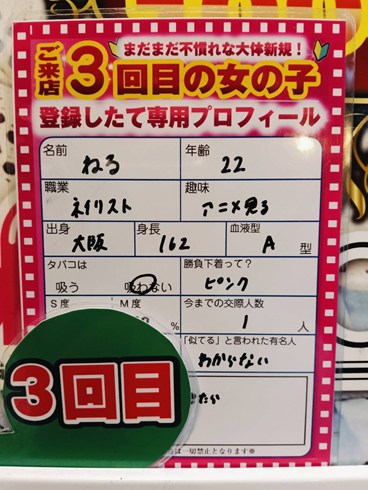 まだまだ不慣れな大体新規！
ご来店3回目の女の子
登録したて専用プロフィール
名前 ねる 年齢 22
職業 ネイリスト 趣味 アニメ見る
出身 大阪 身長 162 血液型 A 型
タバコは 吸う 吸わない 勝負下着って？ ピンク
S度 M度 % 今までの交際人数 1 人
「似てる」と言われた有名人 わからない
3回目
は一切禁止となります※